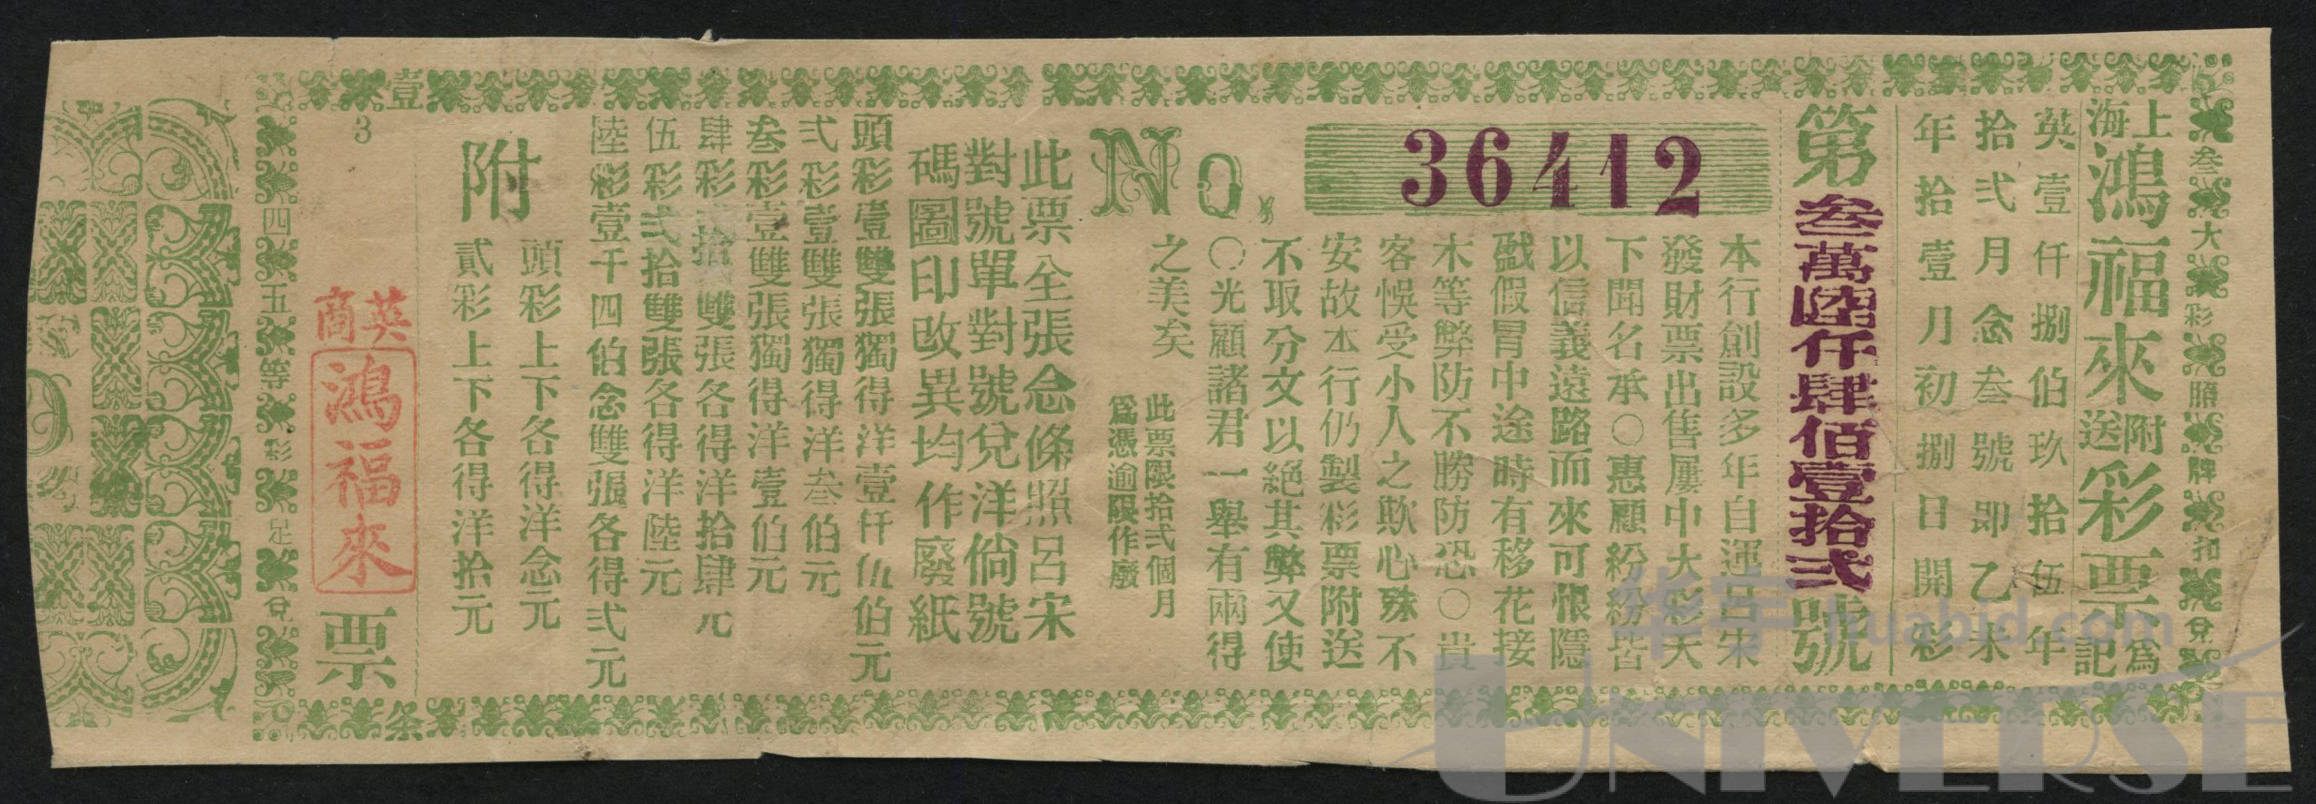 上海鴻福來附送彩票為記
英壹仟捌伯玖拾伍年
拾弍月念叁號即乙未
年拾壹月初捌日開彩
第叁萬陸仟肆佰壹拾弍號
No. 36412
本行創設多年自運呂宋
發財票出售屢中大彩天
下聞名承○惠顧紛紛皆
以信義遠路而來可恨隱
戤假冒中途時有移花接
木等弊防不勝防恐○貴
客悞受小人之欺心殊不
安故本行仍製彩票附送
不取分文以絕其弊又使
○光顧諸君一舉有兩得
之美矣
此票限拾弍個月
為憑逾限作廢
此票全張念條照呂宋
對號單對號兌洋倘號
碼圖印改異均作廢紙
頭彩壹雙張獨得洋壹仟伍伯元
弍彩壹雙張獨得洋叁伯元
叁彩壹雙張獨得洋壹伯元
肆彩拾雙張各得洋拾肆元
伍彩弍拾雙張各得洋陸元
陸彩壹千四伯念雙張各得弍元
附
頭彩上下各得洋念元
貳彩上下各得洋拾元
3
英商
鴻福來
票
壹
条
叁大彩牌兌
四五等彩足兌
华宇 huabid.com
UNIVERSE